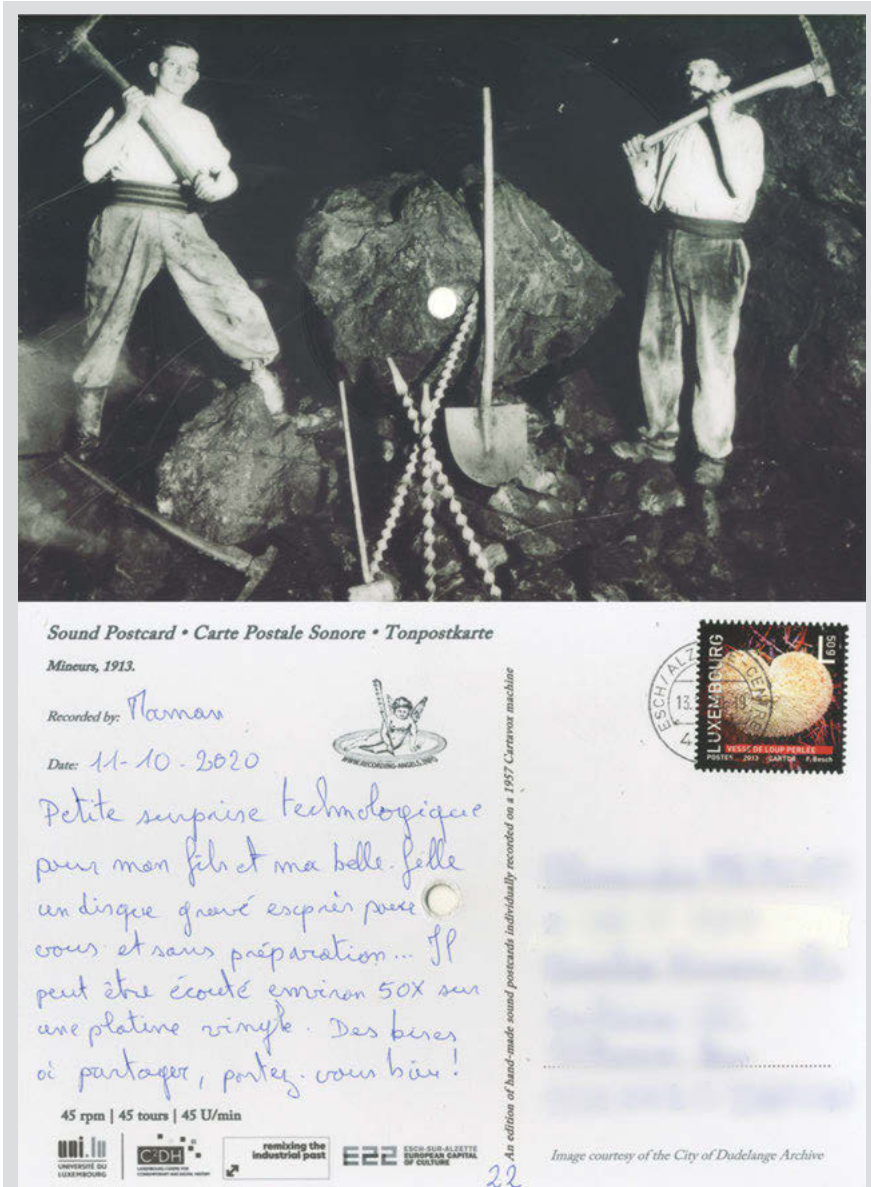 Sound Postcard • Carte Postale Sonore • Tonpostkarte
Mineurs, 1913.
Recorded by: Maman
Date: 11-10-2020
WWW.RECORDING-ANGELS.INFO
Petite surprise technologique
pour mon fils et ma belle-fille
un disque gravé exprès pour
vous et sans préparation... Il
peut être écouté environ 50X sur
une platine vinyle. Des bises
à partager, portez-vous bien!
45 rpm | 45 tours | 45 U/min
uni.lu
UNIVERSITÉ DU
LUXEMBOURG
C²DH
LUXEMBOURG CENTRE FOR
CONTEMPORARY AND DIGITAL HISTORY
remixing the
industrial past
E22
ESCH-SUR-ALZETTE
EUROPEAN CAPITAL
OF CULTURE
An edition of hand-made sound postcards individually recorded on a 1957 Cartavox machine
22
ESCH/ALZETTE-CENTRE
13.
19
4
LUXEMBOURG
L 50g
VESSE DE LOUP PERLÉE
POSTES 2013 CARTOR P.Besch
Image courtesy of the City of Dudelange Archive